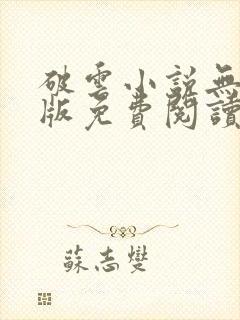 破雲小說無
版免費閱讀
蘇志燮